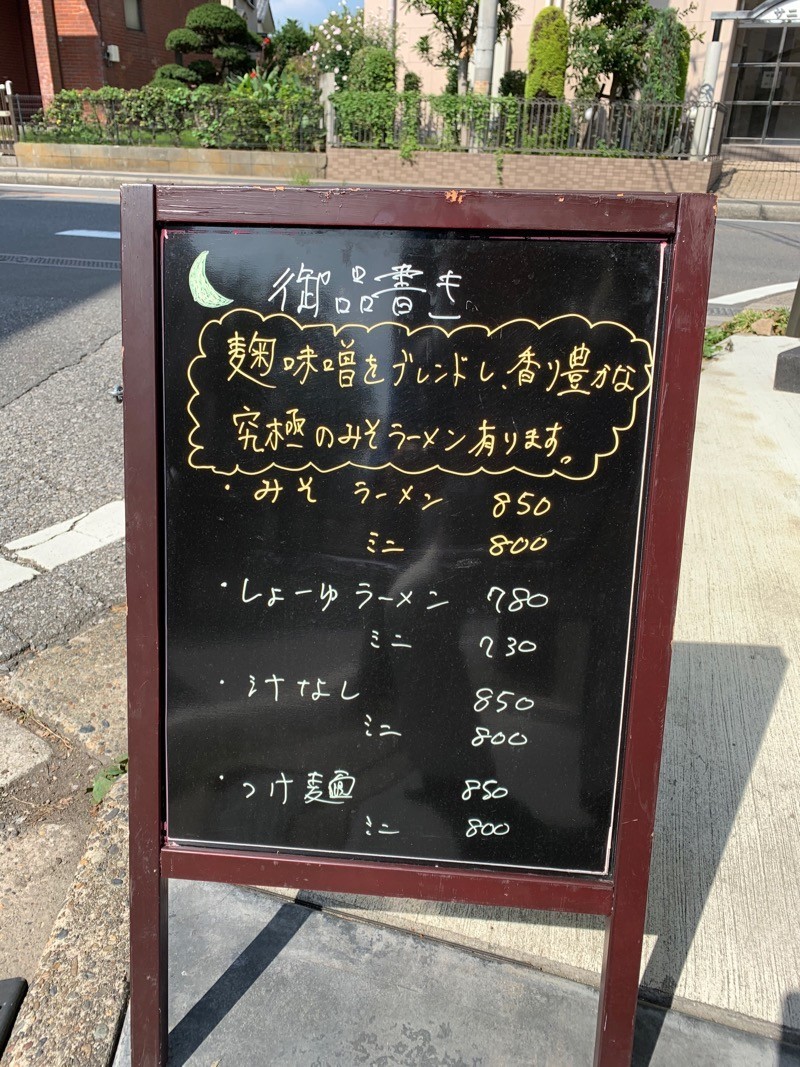 御品書き
麹味噌をブレンドし、香り豊かな
究極のみそラーメン有ります。
・みそ ラーメン 850
ミニ 800
・しょーゆ ラーメン 780
ミニ 730
・汁なし 850
ミニ 800
・つけ麺 850
ミニ 800